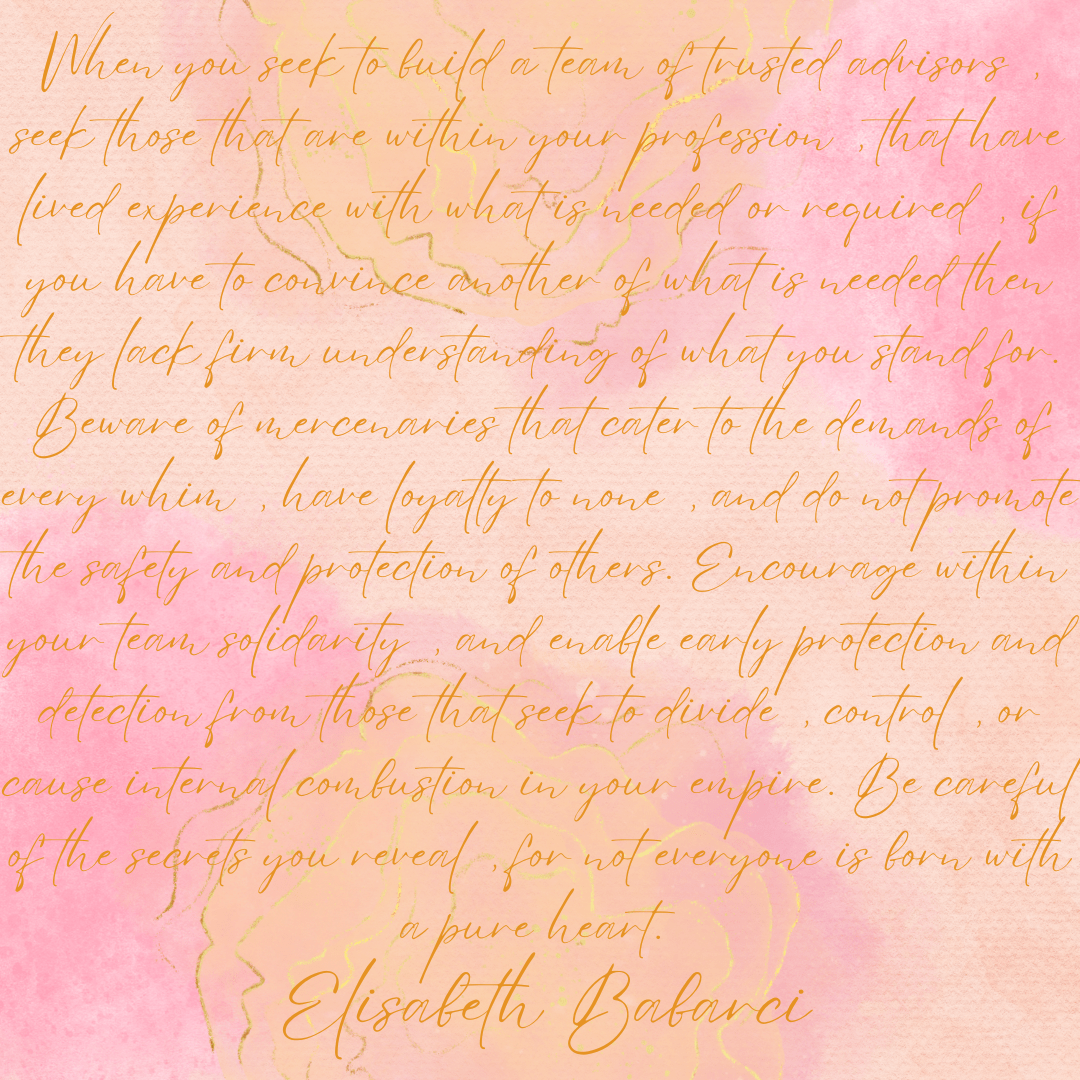 When you seek to build a team of trusted advisors ,
seek those that are within your profession , that have
lived experience with what is needed or required , if
you have to convince another of what is needed then
they lack firm understanding of what you stand for.
Beware of mercenaries that cater to the demands of
every whim , have loyalty to none , and do not promote
the safety and protection of others. Encourage within
your team solidarity , and enable early protection and
detection from those that seek to divide , control , or
cause internal combustion in your empire. Be careful
of the secrets you reveal , for not everyone is born with
a pure heart.
Elisabeth Babarci